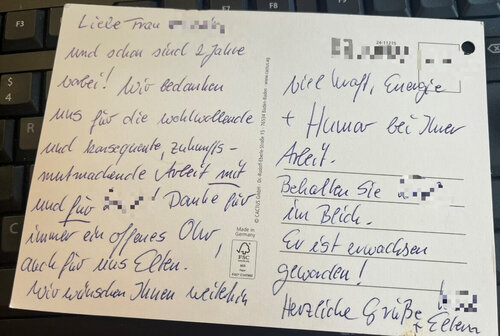 Liebe Frau
und schon sind 2 Jahre
vorbei! Wir bedanken
uns für die wohlwollende
und konsequente, zukunfts-
mutmachende Arbeit mit
und für ! Danke für
immer ein offenes Ohr,
auch für uns Eltern. !
Wir wünschen Ihnen weiterhin
viel Kraft, Energie
+ Humor bei Ihrer
Arbeit.
Behalten Sie
im Blick.
Er ist erwachsen
geworden!
Herzliche Grüße
+ Eltern
24 11215
© CACTUS GmbH · Dr.-Rudolf-Eberle-Straße 15 · 76534 Baden-Baden · www.cactus.ag
Made in
Germany
FSC
F3
$
4
R
F